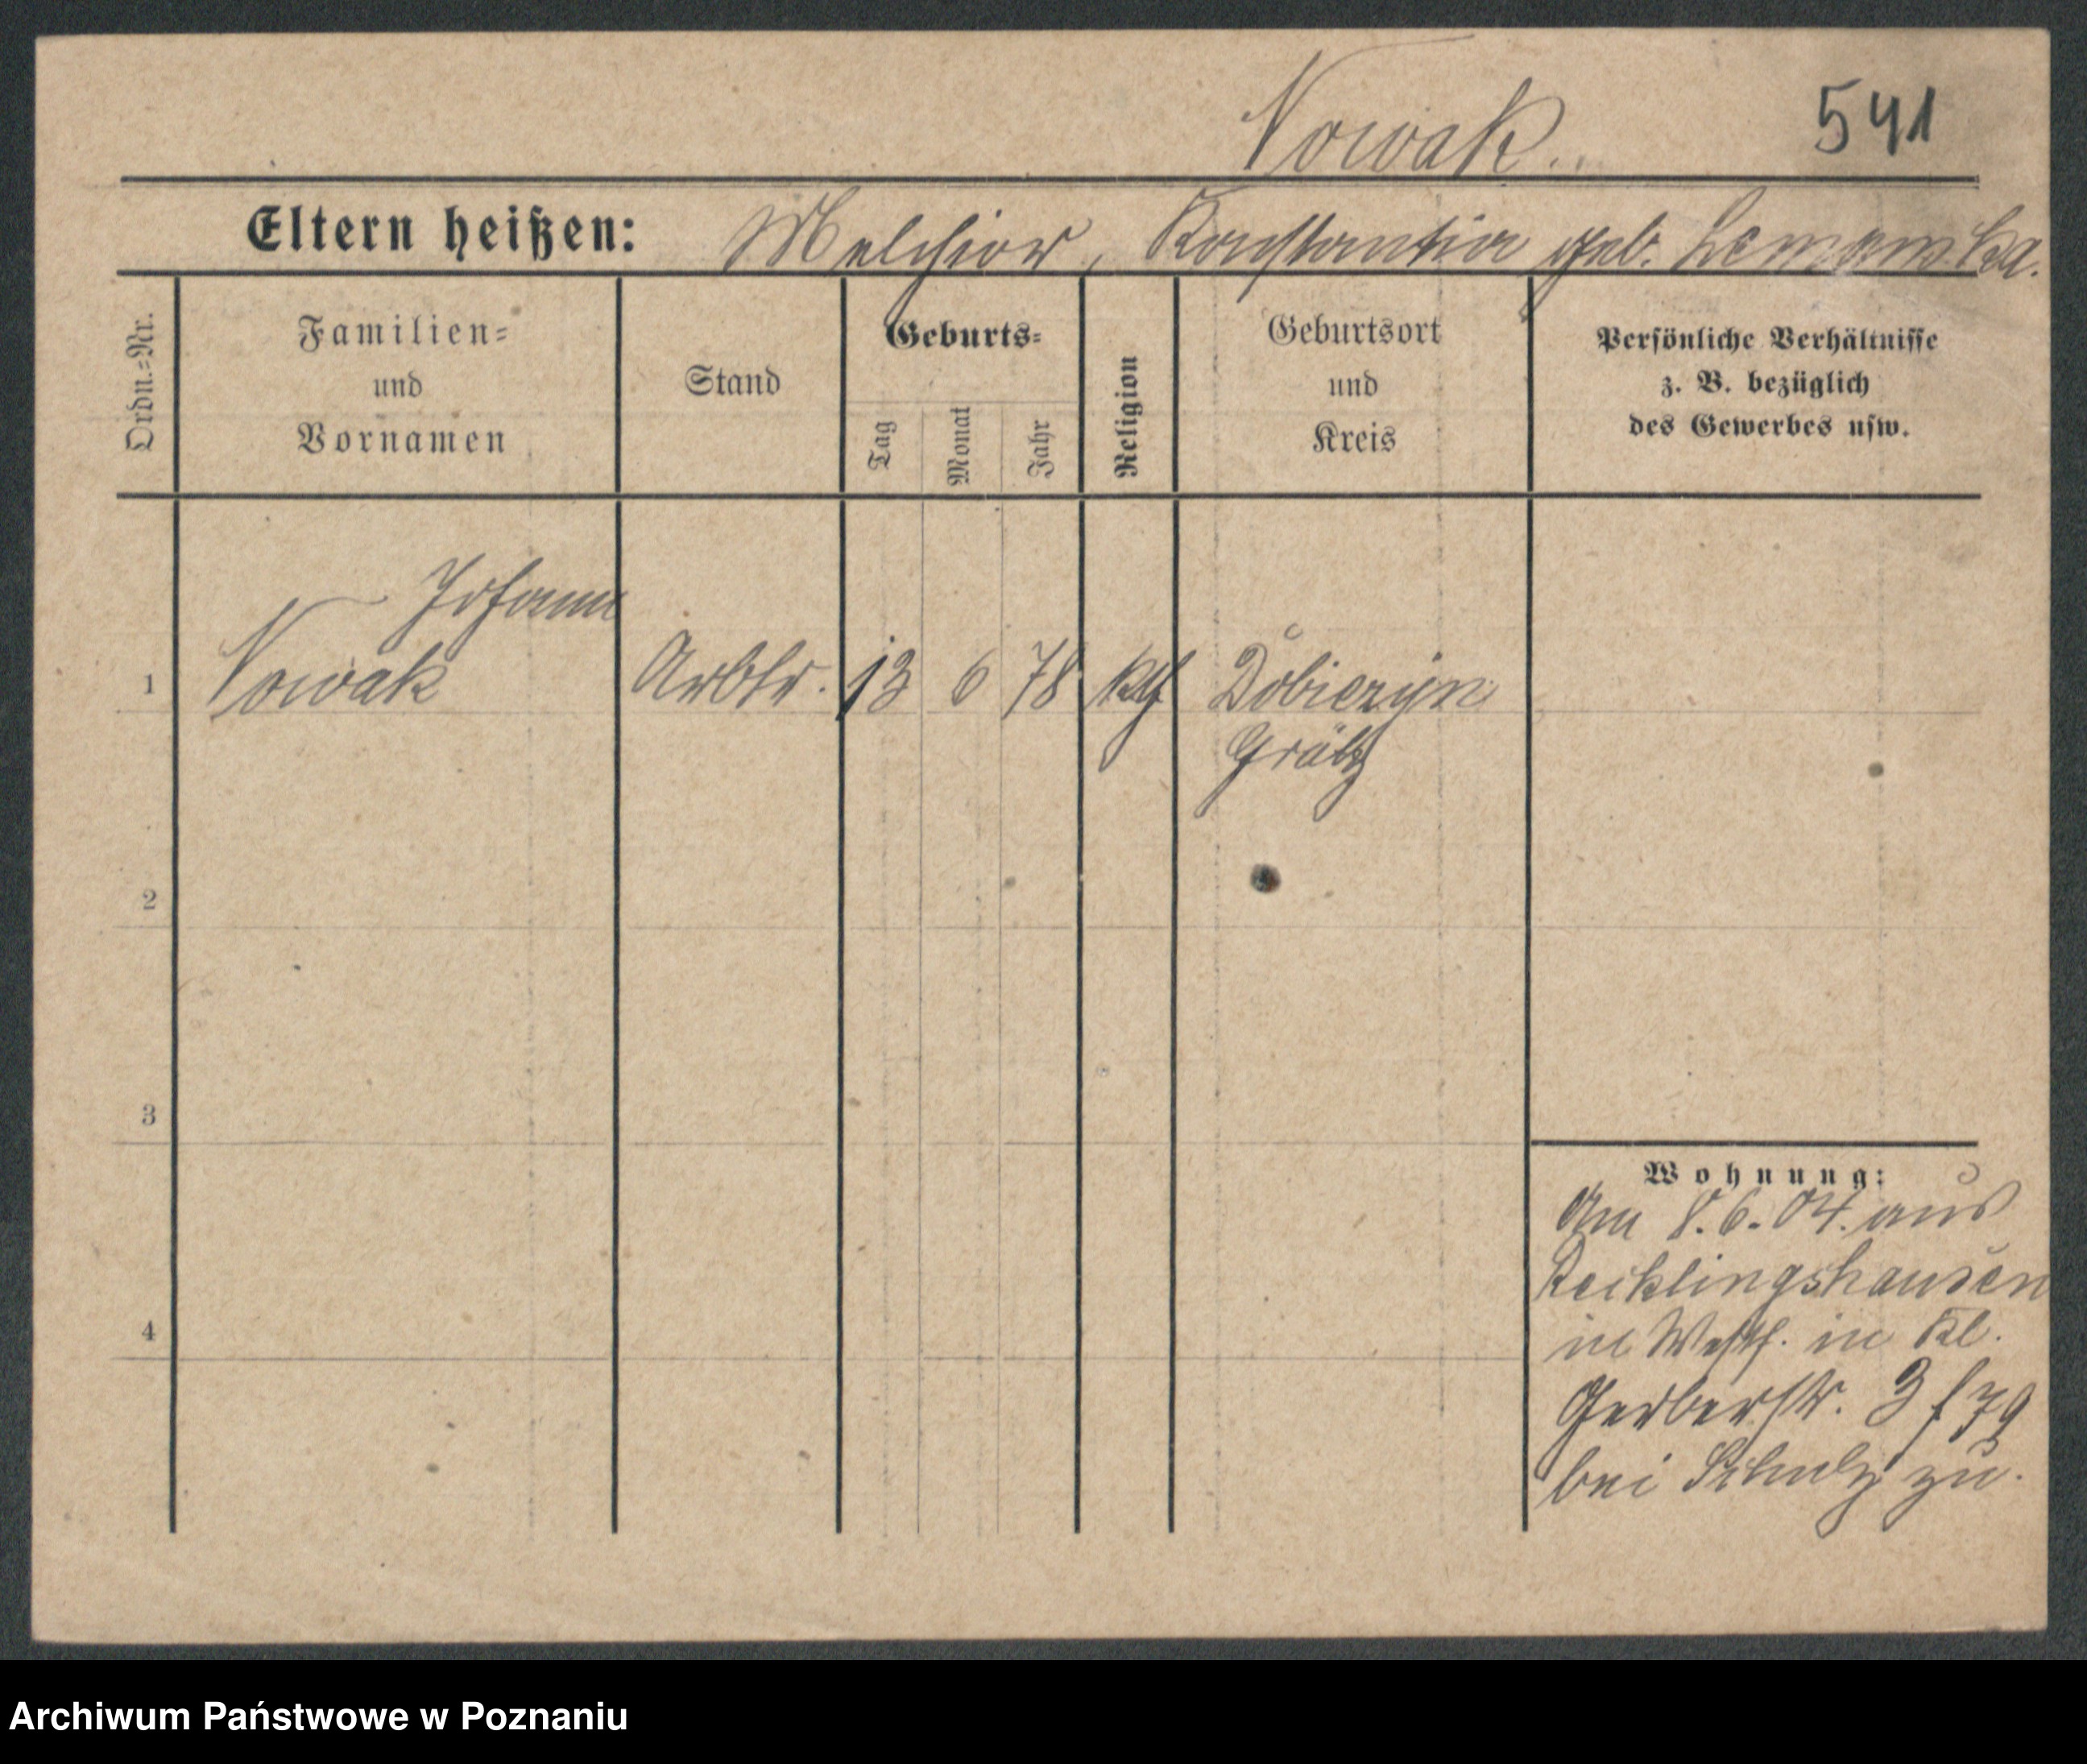 Nowak.
541
Eltern heißen: Melchior, Konstantia geb. Lemanska.
Ordn.=Nr.
Familien=
und
Vornamen
Stand
Geburts=
Tag
Monat
Jahr
Religion
Geburtsort
und
Kreis
Persönliche Verhältnisse
z. B. bezüglich
des Gewerbes usw.
Johann
1 Nowak Arbtr. 13 6 78 kth Dobiezyn
Grätz
2
3
4
Wohnung:
Am 8.6.04. aus
Recklingshausen
in Westf. in Kl.
Gerberstr. 3
bei Schulz zu.
Archiwum Państwowe w Poznaniu